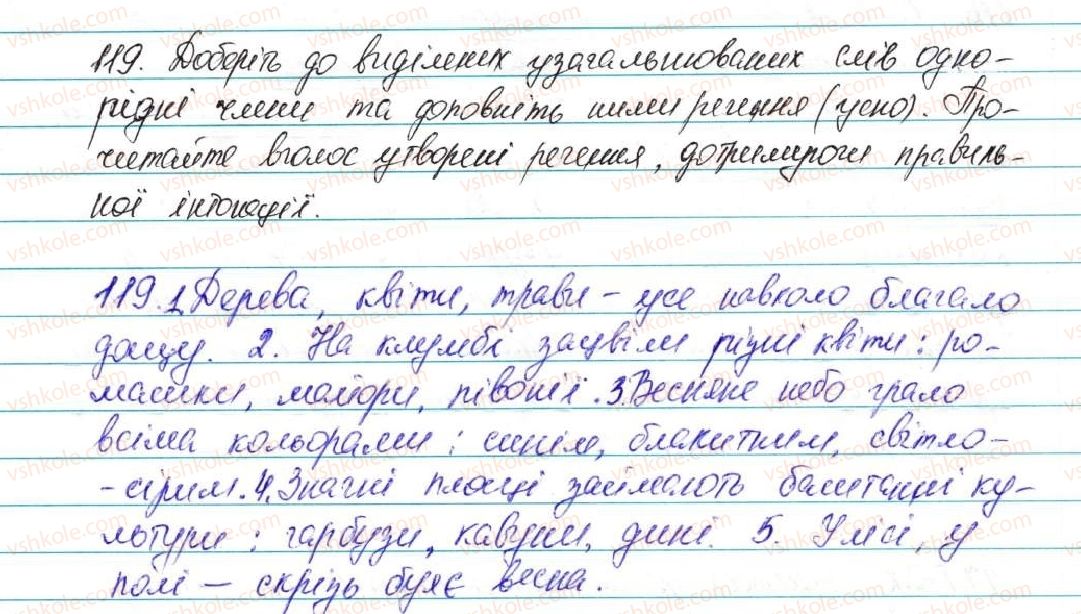 119. Доберіть до виділених узагальнюваних слів одно-
рідні члени та доповніть ними речення (усно). Про-
читайте вголос утворені речення, дотримуючи правиль-
ної інтонації.
119.1. Дерева, квіти, трави – усе навколо благало
дощу. 2. На клумбі зацвіли різні квіти: ро-
машки, майори, півонії. 3. Весняне небо грало
всіма кольорами: синім, блакитним, світло-
-сірим. 4. Значні площі займають баштанні ку-
льтури: гарбузи, кавуни, дині. 5. У лісі, у
полі – скрізь буяє весна.